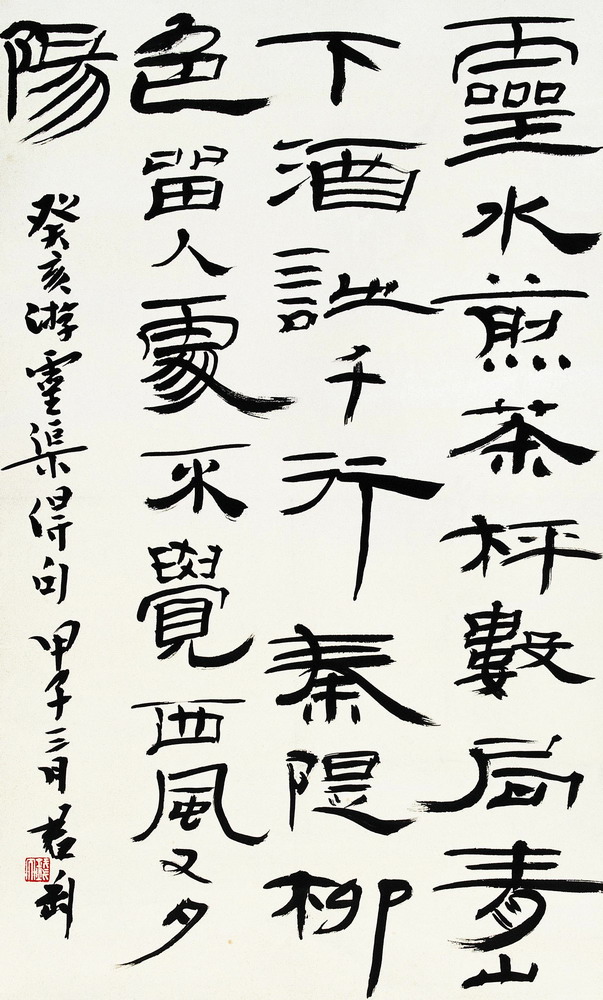 靈水煎茶枰數局青山
下酒詩千行秦隄柳
色留人處不覺西風又夕
陽
癸亥游靈渠得句 甲午三月